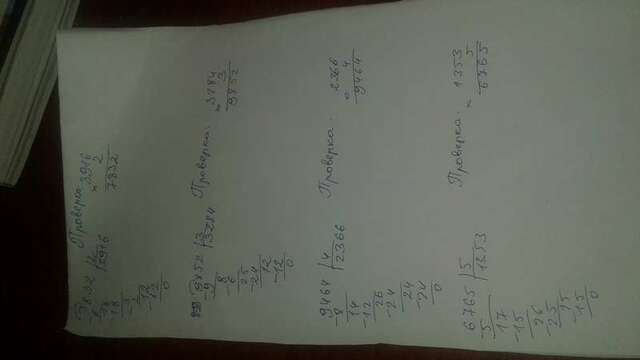 7832 | 2 Проверка
6 | 3916 3916
18 × 2
18 7832
3
2
12
-12
0
9852 | 3 Проверка.
-9 | 3284 3284
8 × 3
-6 9852
25
-24
12
-12
0
9464 | 4 Проверка.
-8 | 2366 2366
14 × 4
-12 9464
26
-24
24
-24
0
6765 | 5 Проверка.
5 | 1353 1353
17 × 5
-15 6765
26
-25
15
-15
0